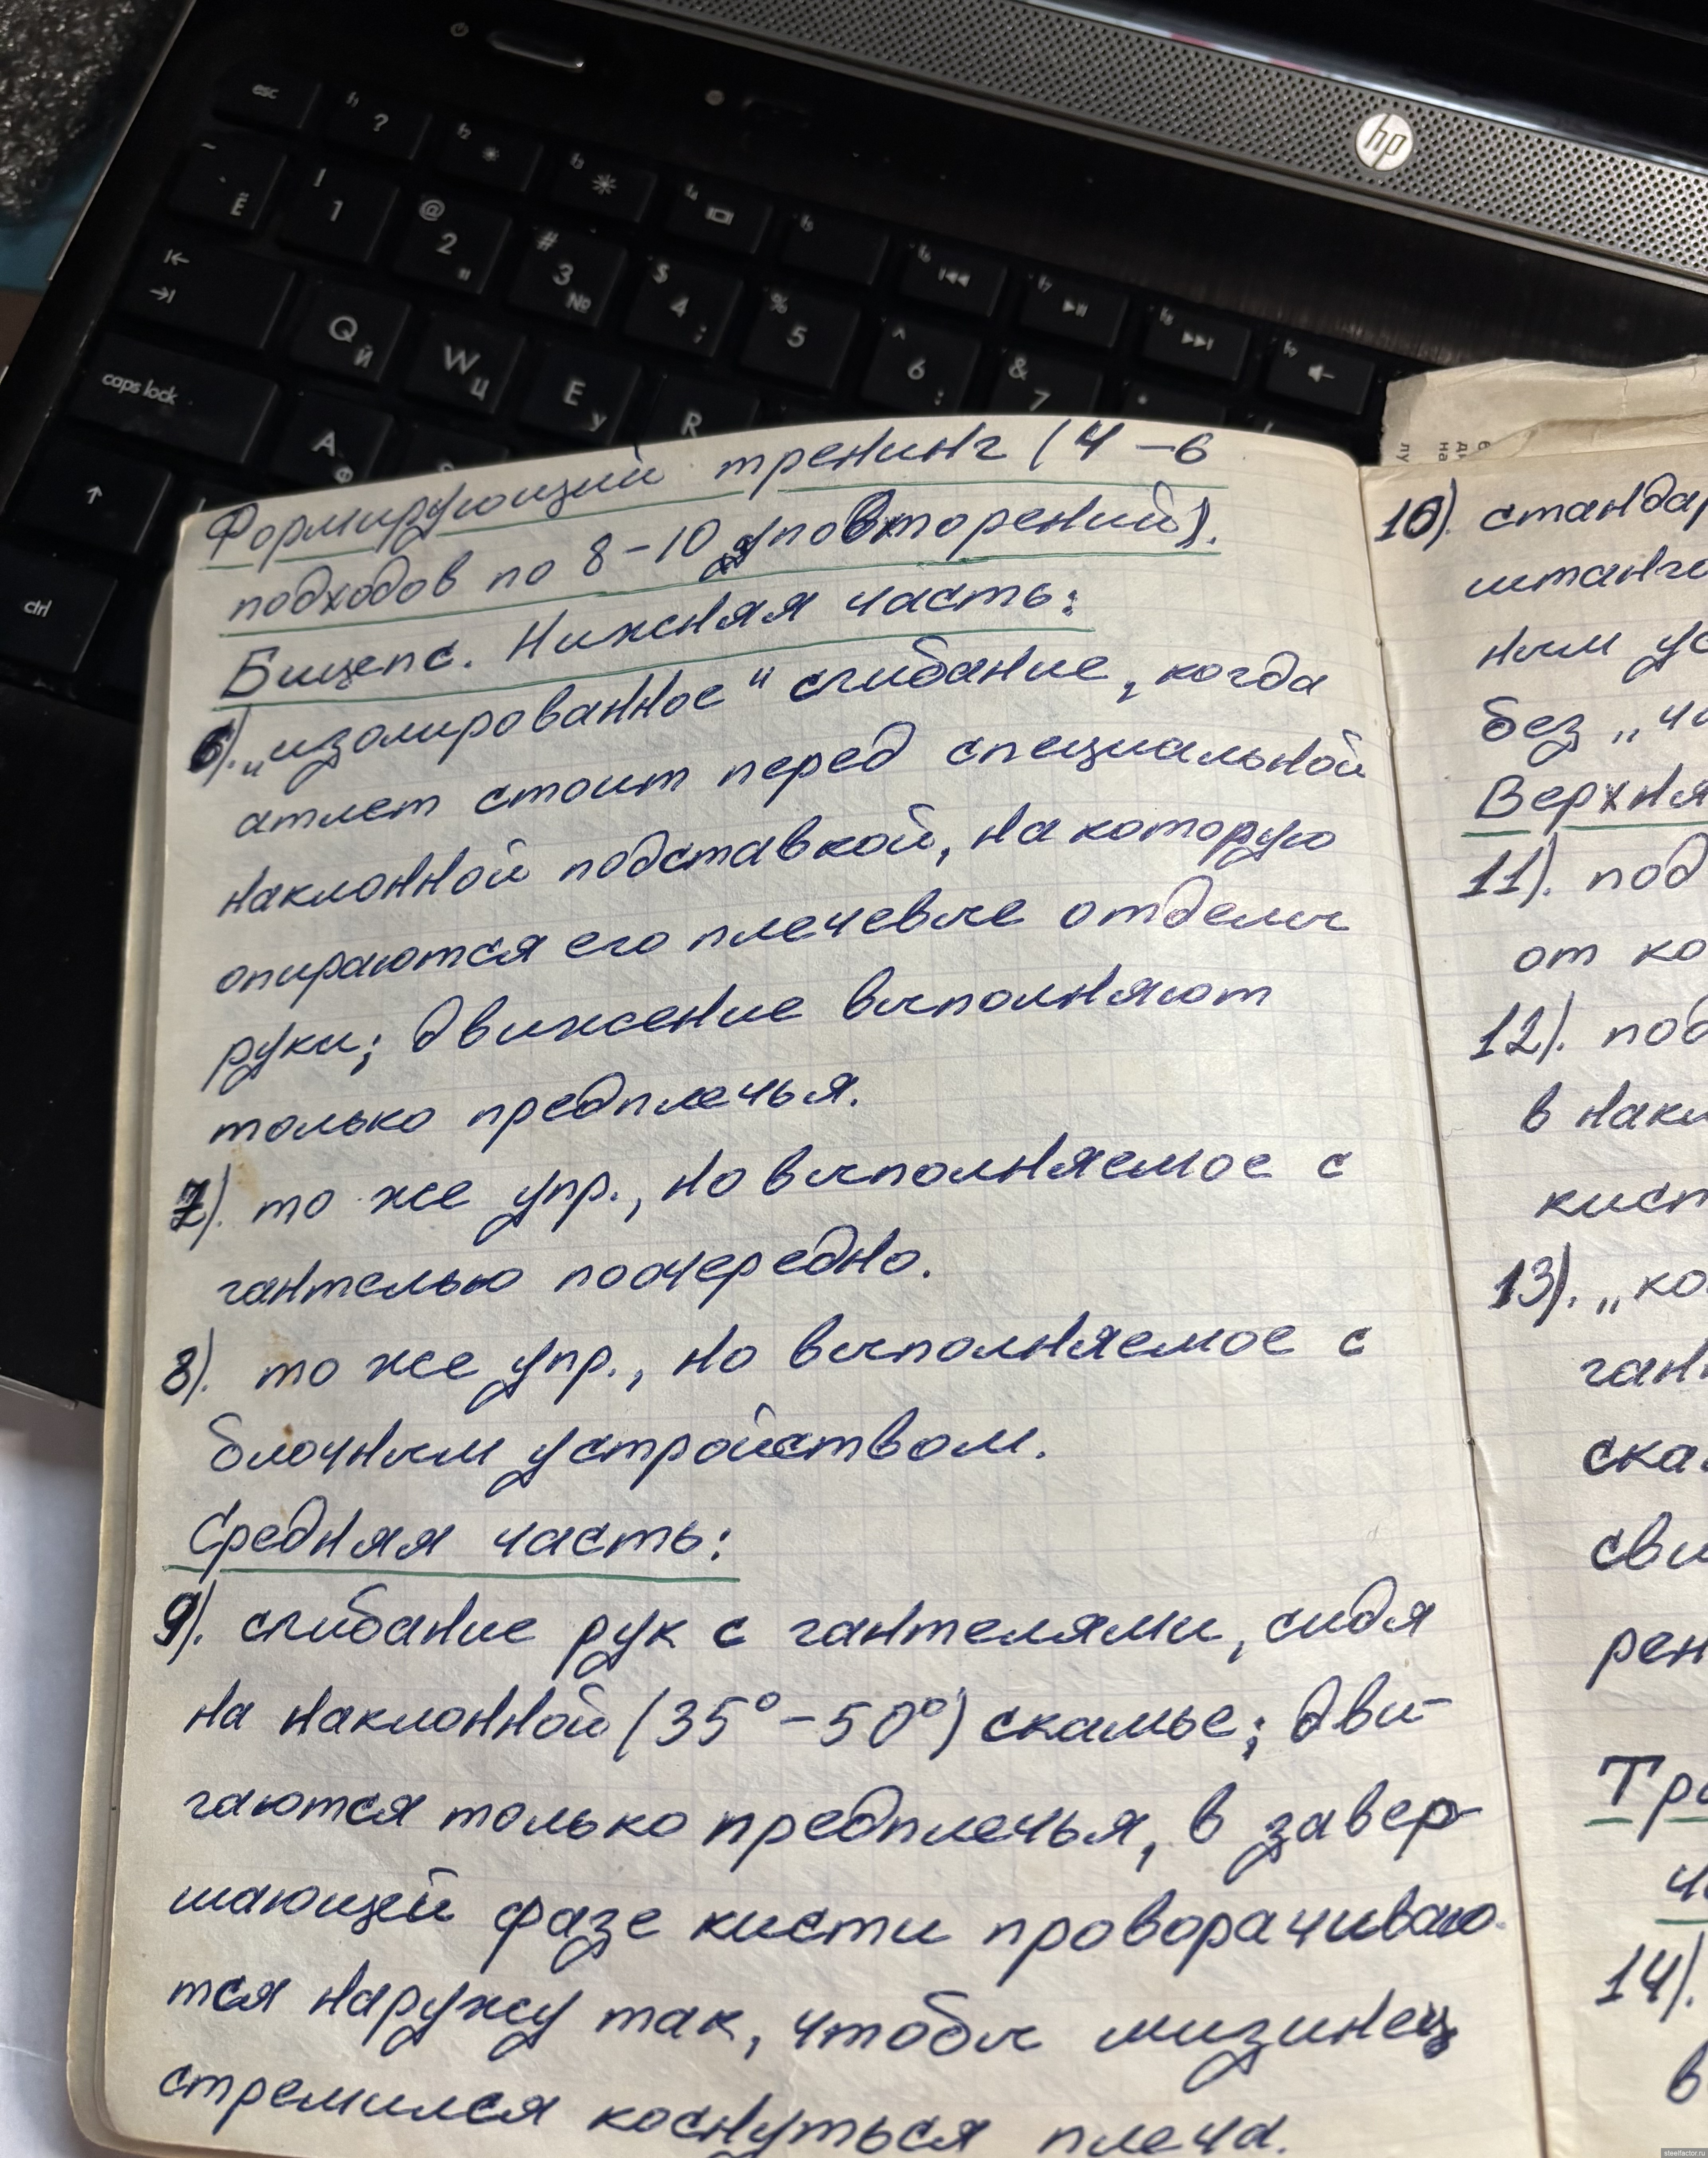 esc f1 ? f2 f3 f4 f5 f6 f7 f8 f9
~ ` Ё ! 1 @ 2 " # 3 № $ 4 ; % 5 ^ 6 : & 7 *
Q Й W Ц E У R
caps lock A Ф
ctrl
hp
Формирующий тренинг (4-6
подходов по 8-10 повторений).
Бицепс. Нижняя часть:
6). „изолированное" сгибание, когда
атлет стоит перед специальной
наклонной подставкой, на которую
опираются его плечевые отделы
руки; движение выполняют
только предплечья.
7). то же упр., но выполняемое с
гантелью поочередно.
8). то же упр., но выполняемое с
блочным устройством.
Средняя часть:
9). сгибание рук с гантелями, сидя
на наклонной (35°-50°) скамье; дви-
гаются только предплечья, в завер-
шающей фазе кисти проворачиваю-
тся наружу так, чтобы мизинец
стремился коснуться плеча.
10). стандар
штанги
ным ус
без „чи
Верхня
11). под
от ко
12). под
в накл
кист
13). „ко
гант
ска
сви
рен
Три
ча
14).
в
steelfactor.ru